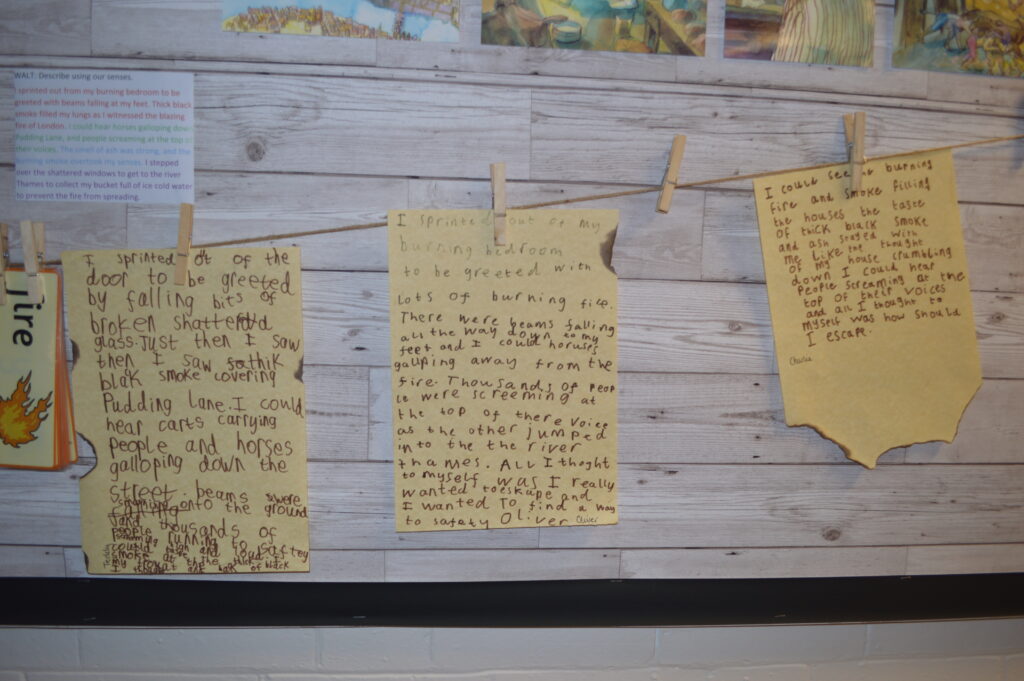 WALT: Describe using our senses.
I sprinted out from my burning bedroom to be
greeted with beams falling at my feet. Thick black
smoke filled my lungs as I witnessed the blazing
fire of London. I could hear horses galloping down
Pudding Lane, and people screaming at the top of
their voices. The smell of ash was strong, and the
burning smoke overtook my senses. I stepped
over the shattered windows to get to the river
Thames to collect my bucket full of ice cold water
to prevent the fire from spreading.
fire
I sprinted out of the
door to be greeted
by falling bits of
broken
glass. Just then I saw
then I saw
blak smoke covering
Pudding Lane. I could
hear carts carrying
people and horses
galloping down the
street. beams were
onto the ground
thousands of
people running
to saftey
smoke
my throat
I sprinted out of my
burning bedroom
to be greeted with
Lots of burning fire.
There were beams falling
all the way down to my
feet and I could horuses
gallping away from the
fire. Thousands of peop
le were screeming at
the top of there voice
as the other jumped
in to the the river
thames. ALL I thoght
to myself was I really
wanted to eskape and
I wanted To find a way
to safaty Oliver Oliver
I could see burning
fire and smoke filling
the houses the taste
of thick black smoke
and ash stayed with
me like the thought
of my house crumbling
down I could hear
People screaming at the
top of their voices
and all I thought to
myself was how should
I escape.
Charlie